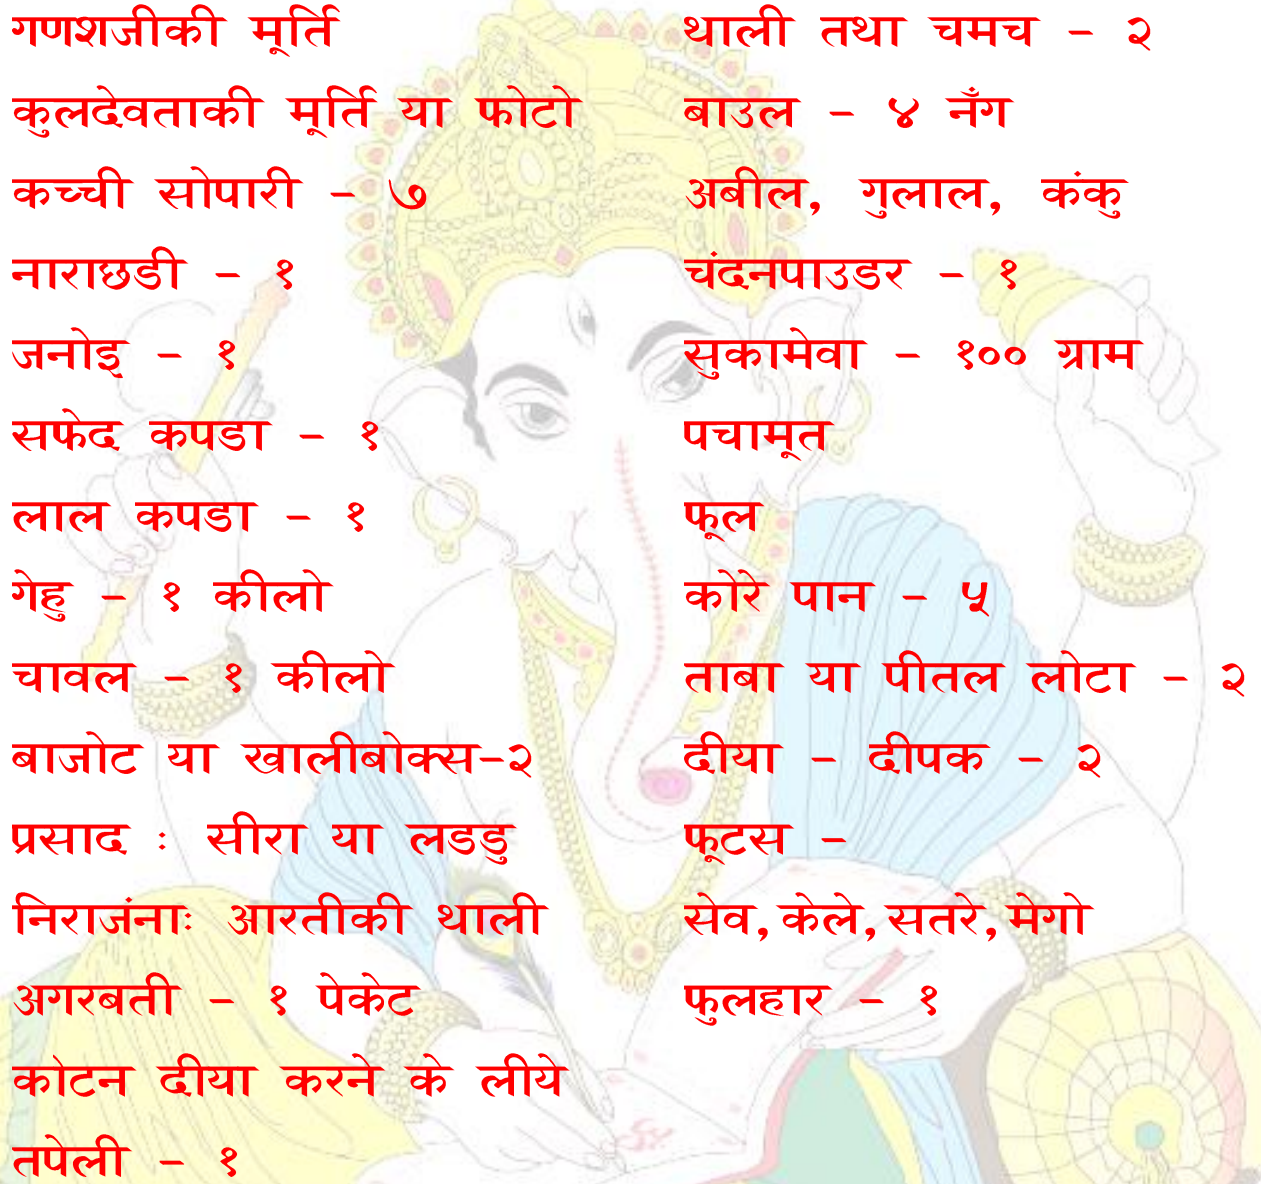 गणशजीकी मूर्ति
कुलदेवताकी मूर्ति या फोटो
कच्ची सोपारी - ७
नाराछडी - १
जनोइ - १
सफेद कपडा - १
लाल कपडा - १
गेहु - १ कीलो
चावल - १ कीलो
बाजोट या खालीबोक्स-२
प्रसाद : सीरा या लडडु
निराजंनाः आरतीकी थाली
अगरबती - १ पेकेट
कोटन दीया करने के लीये
तपेली - १
थाली तथा चमच - २
बाउल - ४ नँग
अबील, गुलाल, कंकु
चंदनपाउडर - १
सुकामेवा - १०० ग्राम
पचामृत
फूल
कोरे पान - ५
ताबा या पीतल लोटा - २
दीया - दीपक - २
फूटस -
सेव, केले, सतरे, मेगो
फुलहार - १